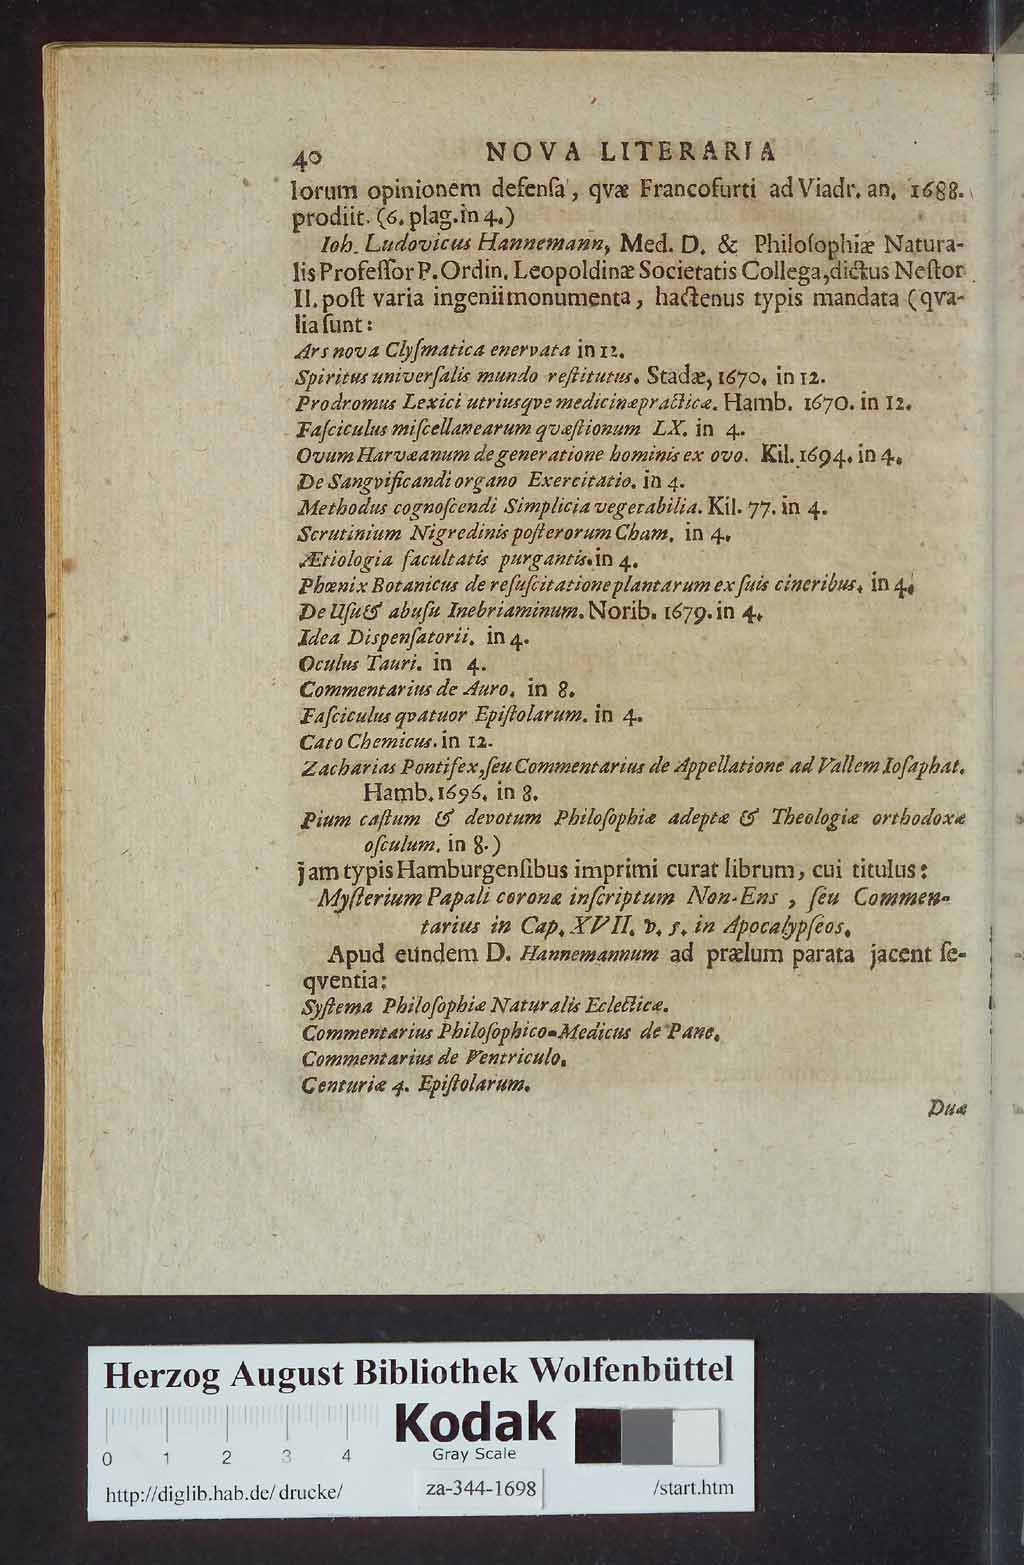 40 NOVA LITERARIA
lorum opinionem defenſa, qvæ Francofurti ad Viadr. an. 1688.
prodiit. (6. plag. in 4.)
Ioh. Ludovicus Hannemann, Med. D. & Philoſophiæ Natura-
lis Profeſſor P. Ordin. Leopoldinæ Societatis Collega, dictus Neſtor
II. poſt varia ingenii monumenta, hactenus typis mandata (qva-
lia ſunt:
Ars nova Clyſmatica enervata in 12.
Spiritus univerſalis mundo reſtitutus. Stadæ, 1670. in 12.
Prodromus Lexici utriusqve medicinæ practicæ. Hamb. 1670. in 12.
Faſciculus miſcellanearum qvæſtionum LX. in 4.
Ovum Harvæanum de generatione hominis ex ovo. Kil. 1694. in 4.
De Sangvificandi organo Exercitatio. in 4.
Methodus cognoſcendi Simplicia vegetabilia. Kil. 77. in 4.
Scrutinium Nigredinis poſterorum Cham. in 4.
Ætiologia facultatis purgantis. in 4.
Phœnix Botanicus de reſuſcitatione plantarum ex ſuis cineribus. in 4.
De Uſu & abuſu Inebriaminum. Norib. 1679. in 4.
Idea Dispenſatorii. in 4.
Oculus Tauri. in 4.
Commentarius de Auro. in 8.
Faſciculus qvatuor Epiſtolarum. in 4.
Cato Chemicus. in 12.
Zacharias Pontifex, ſeu Commentarius de Appellatione ad Vallem Ioſaphat.
Hamb. 1696. in 8.
Pium caſtum & devotum Philoſophiæ adeptæ & Theologiæ orthodoxæ
oſculum. in 8.)
jam typis Hamburgenſibus imprimi curat librum, cui titulus:
Myſterium Papali coronæ inſcriptum Non-Ens, ſeu Commen-
tarius in Cap. XVII. v. 5. in Apocalypſeos.
Apud eundem D. Hannemannum ad prælum parata jacent ſe-
qventia:
Syſtema Philoſophiæ Naturalis Eclecticæ.
Commentarius Philoſophico-Medicus de Pane.
Commentarius de Ventriculo.
Centuriæ 4. Epiſtolarum.
Duæ
Herzog August Bibliothek Wolfenbüttel
Kodak
Gray Scale
0 1 2 3 4
http://diglib.hab.de/drucke/ za-344-1698 /start.htm